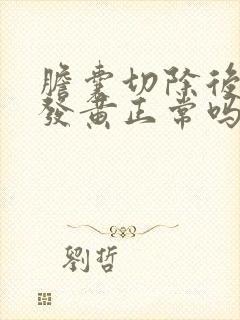 膽囊切除後
發黃正常嗎
劉哲